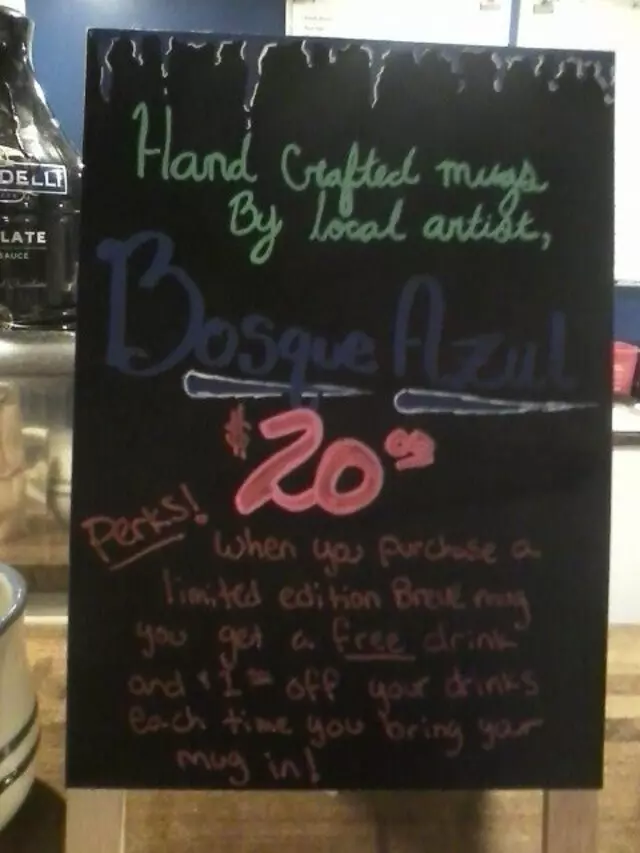 DELLI
LATE
SAUCE
Hand Crafted mugs
By local artist,
Bosque Azul
$20.00
Perks! When you purchase a
limited edition Breve mug
you get a free drink
and $1.00 off your drinks
each time you bring your
mug in!